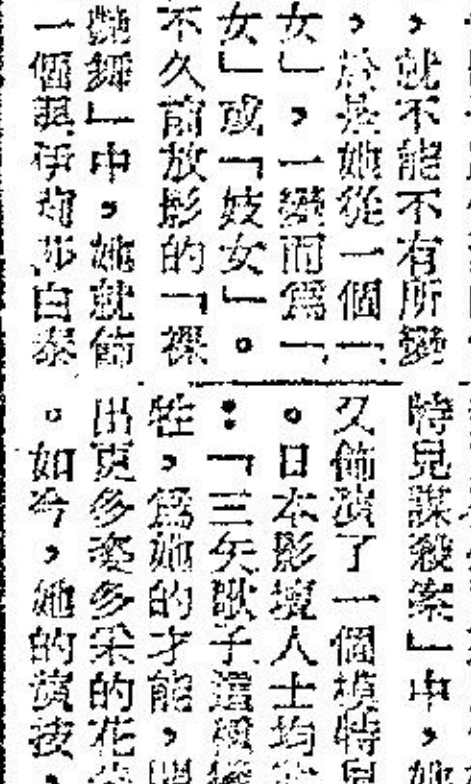 ，就不能不有所變
，於是她從一個「
女」，一變而爲「
女」或「妓女」。
不久前放影的「裸
艷舞」中，她就飾
一個與伊白泰
特兒謀殺案」中，她
又飾演了一個模特兒
。日本影壇人士均
：「三矢歌子
牲，爲她的才能，
出更多姿多采的花
。如今，她的演技，